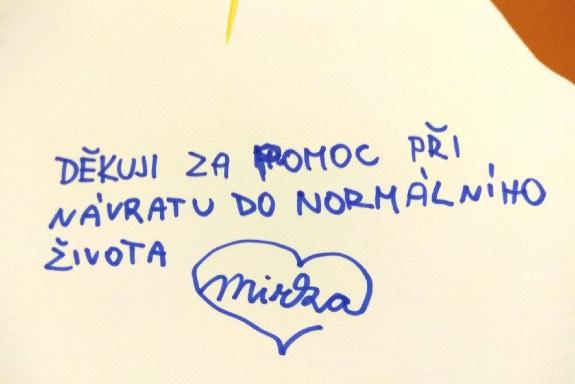 DĚKUJI ZA POMOC PŘI
NÁVRATU DO NORMÁLNÍHO
ŽIVOTA
Mirka